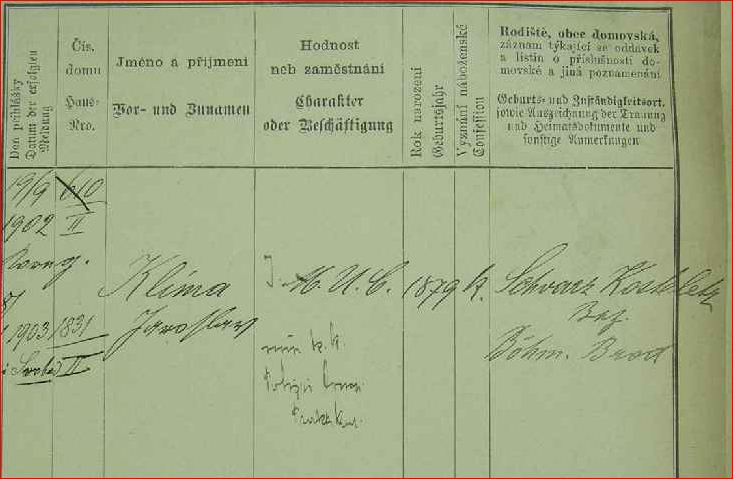 Den přihlášky
Datum der erfolgten
Meldung
Čís.
domu
Haus-
Nro.
Jméno a příjmení
Vor- und Zunamen
Hodnost
neb zaměstnání
Charakter
oder Beschäftigung
Rok narození
Geburtsjahr
Vyznání náboženské
Confession
Rodiště, obec domovská,
záznam týkající se oddavek
a listin o příslušnosti do-
movské a jiná poznamenání
Geburts- und Zuständigkeitsort,
sowie Auszeichnung der Trauung
und Heimatsdokumente und
sonstige Anmerkungen
19/9
1902
1903
610
II
1831
II
Klíma
Jaroslav
M. U. C.
nun k. k.
1879
k.
Schwarz Kosteletz
Bez.
Böhm. Brod